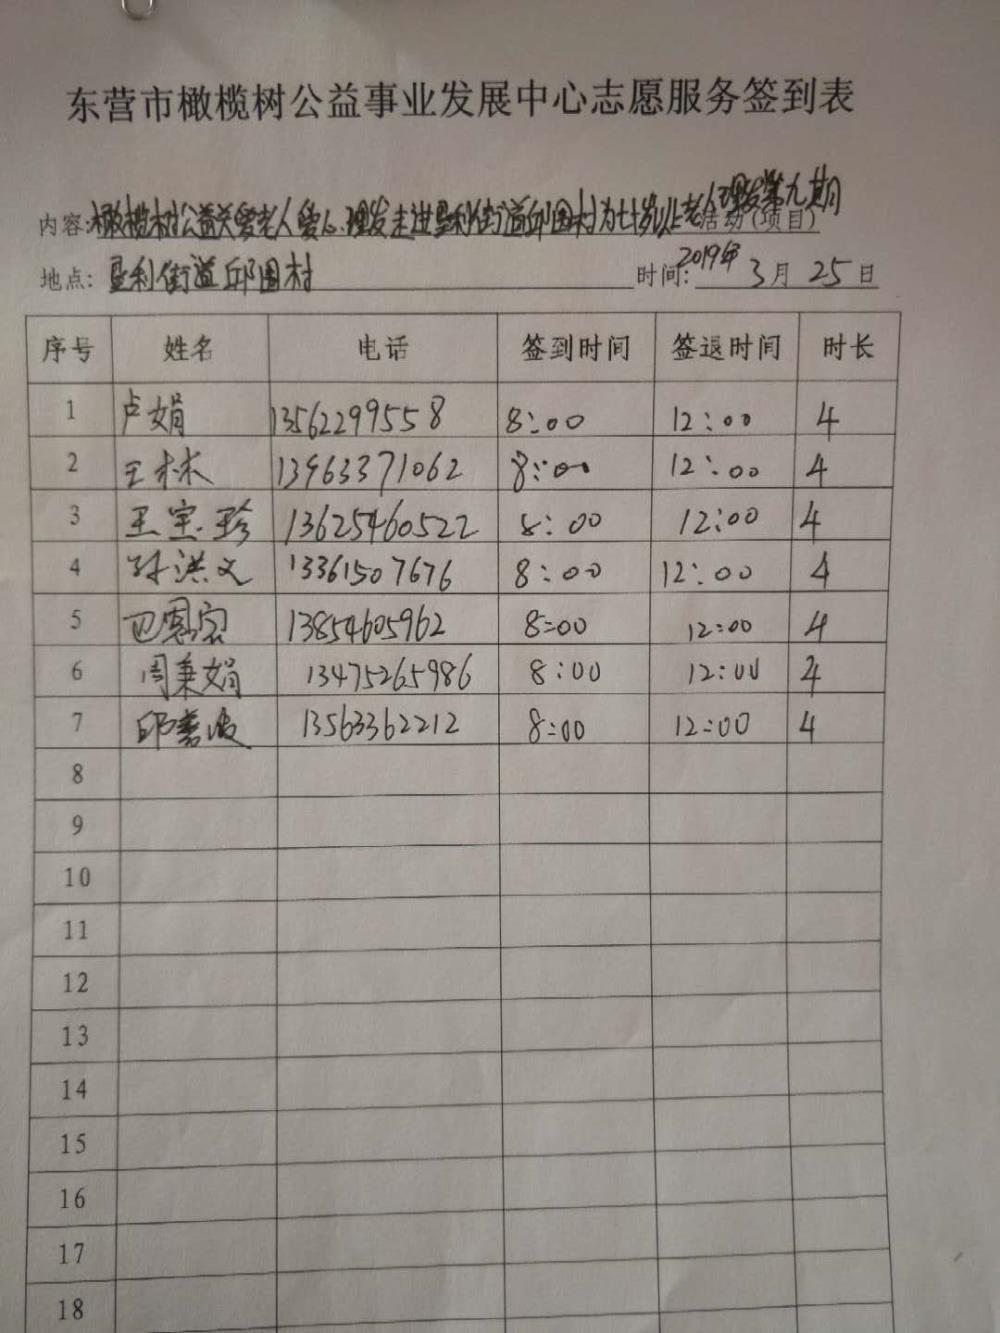 东营市橄榄树公益事业发展中心志愿服务签到表
内容:橄榄树公益关爱老人爱心理发走进垦利街道邱围村为七十岁以上老人理发第九期活动(项目)
地点:垦利街道邱围村 时间:2019年3月25日
序号 姓名 电话 签到时间 签退时间 时长
1 卢娟 13562299558 8:00 12:00 4
2 王林 13963371062 8:00 12:00 4
3 王宝珍 13625460522 8:00 12:00 4
4 孙洪文 13361507676 8:00 12:00 4
5 13854605962 8:00 12:00 4
6 周秉娟 13475265986 8:00 12:00 4
7 邱善波 13563362212 8:00 12:00 4
8
9
10
11
12
13
14
15
16
17
18